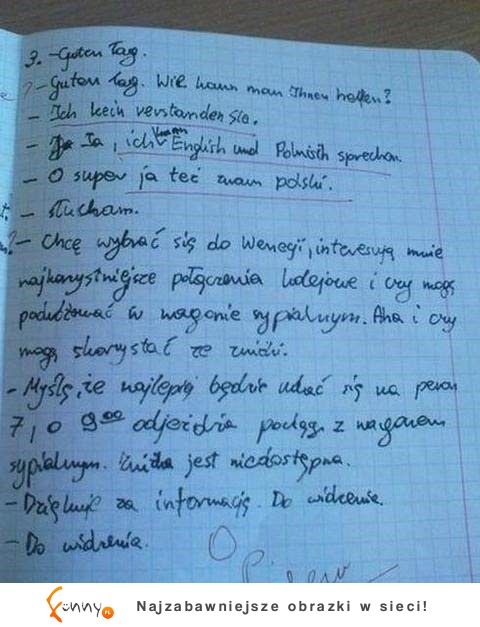 3. - Guten Tag.
- Guten Tag. Wie kann man Ihnen helfen?
- Ich kein verstanden Sie.
- Ja, ich kann English und Polnisch sprechen.
- O super ja też znam polski.
- Słucham.
- Chcę wybrać się do Wenecji, interesują mnie
najkorzystniejsze połączenia kolejowe i czy mogę
podróżować w wagonie sypialnym. Aha i czy
mogę skorystać ze zniżki.
- Myślę, że najlepiej będzie udać się na peron
7, o 9 00 odjeżdża pociąg z wagonem
sypialnym. Zniżka jest niedostępna.
- Dziękuję za informację. Do widzenia.
- Do widzenia.
O
funny.pl
Najzabawniejsze obrazki w sieci!